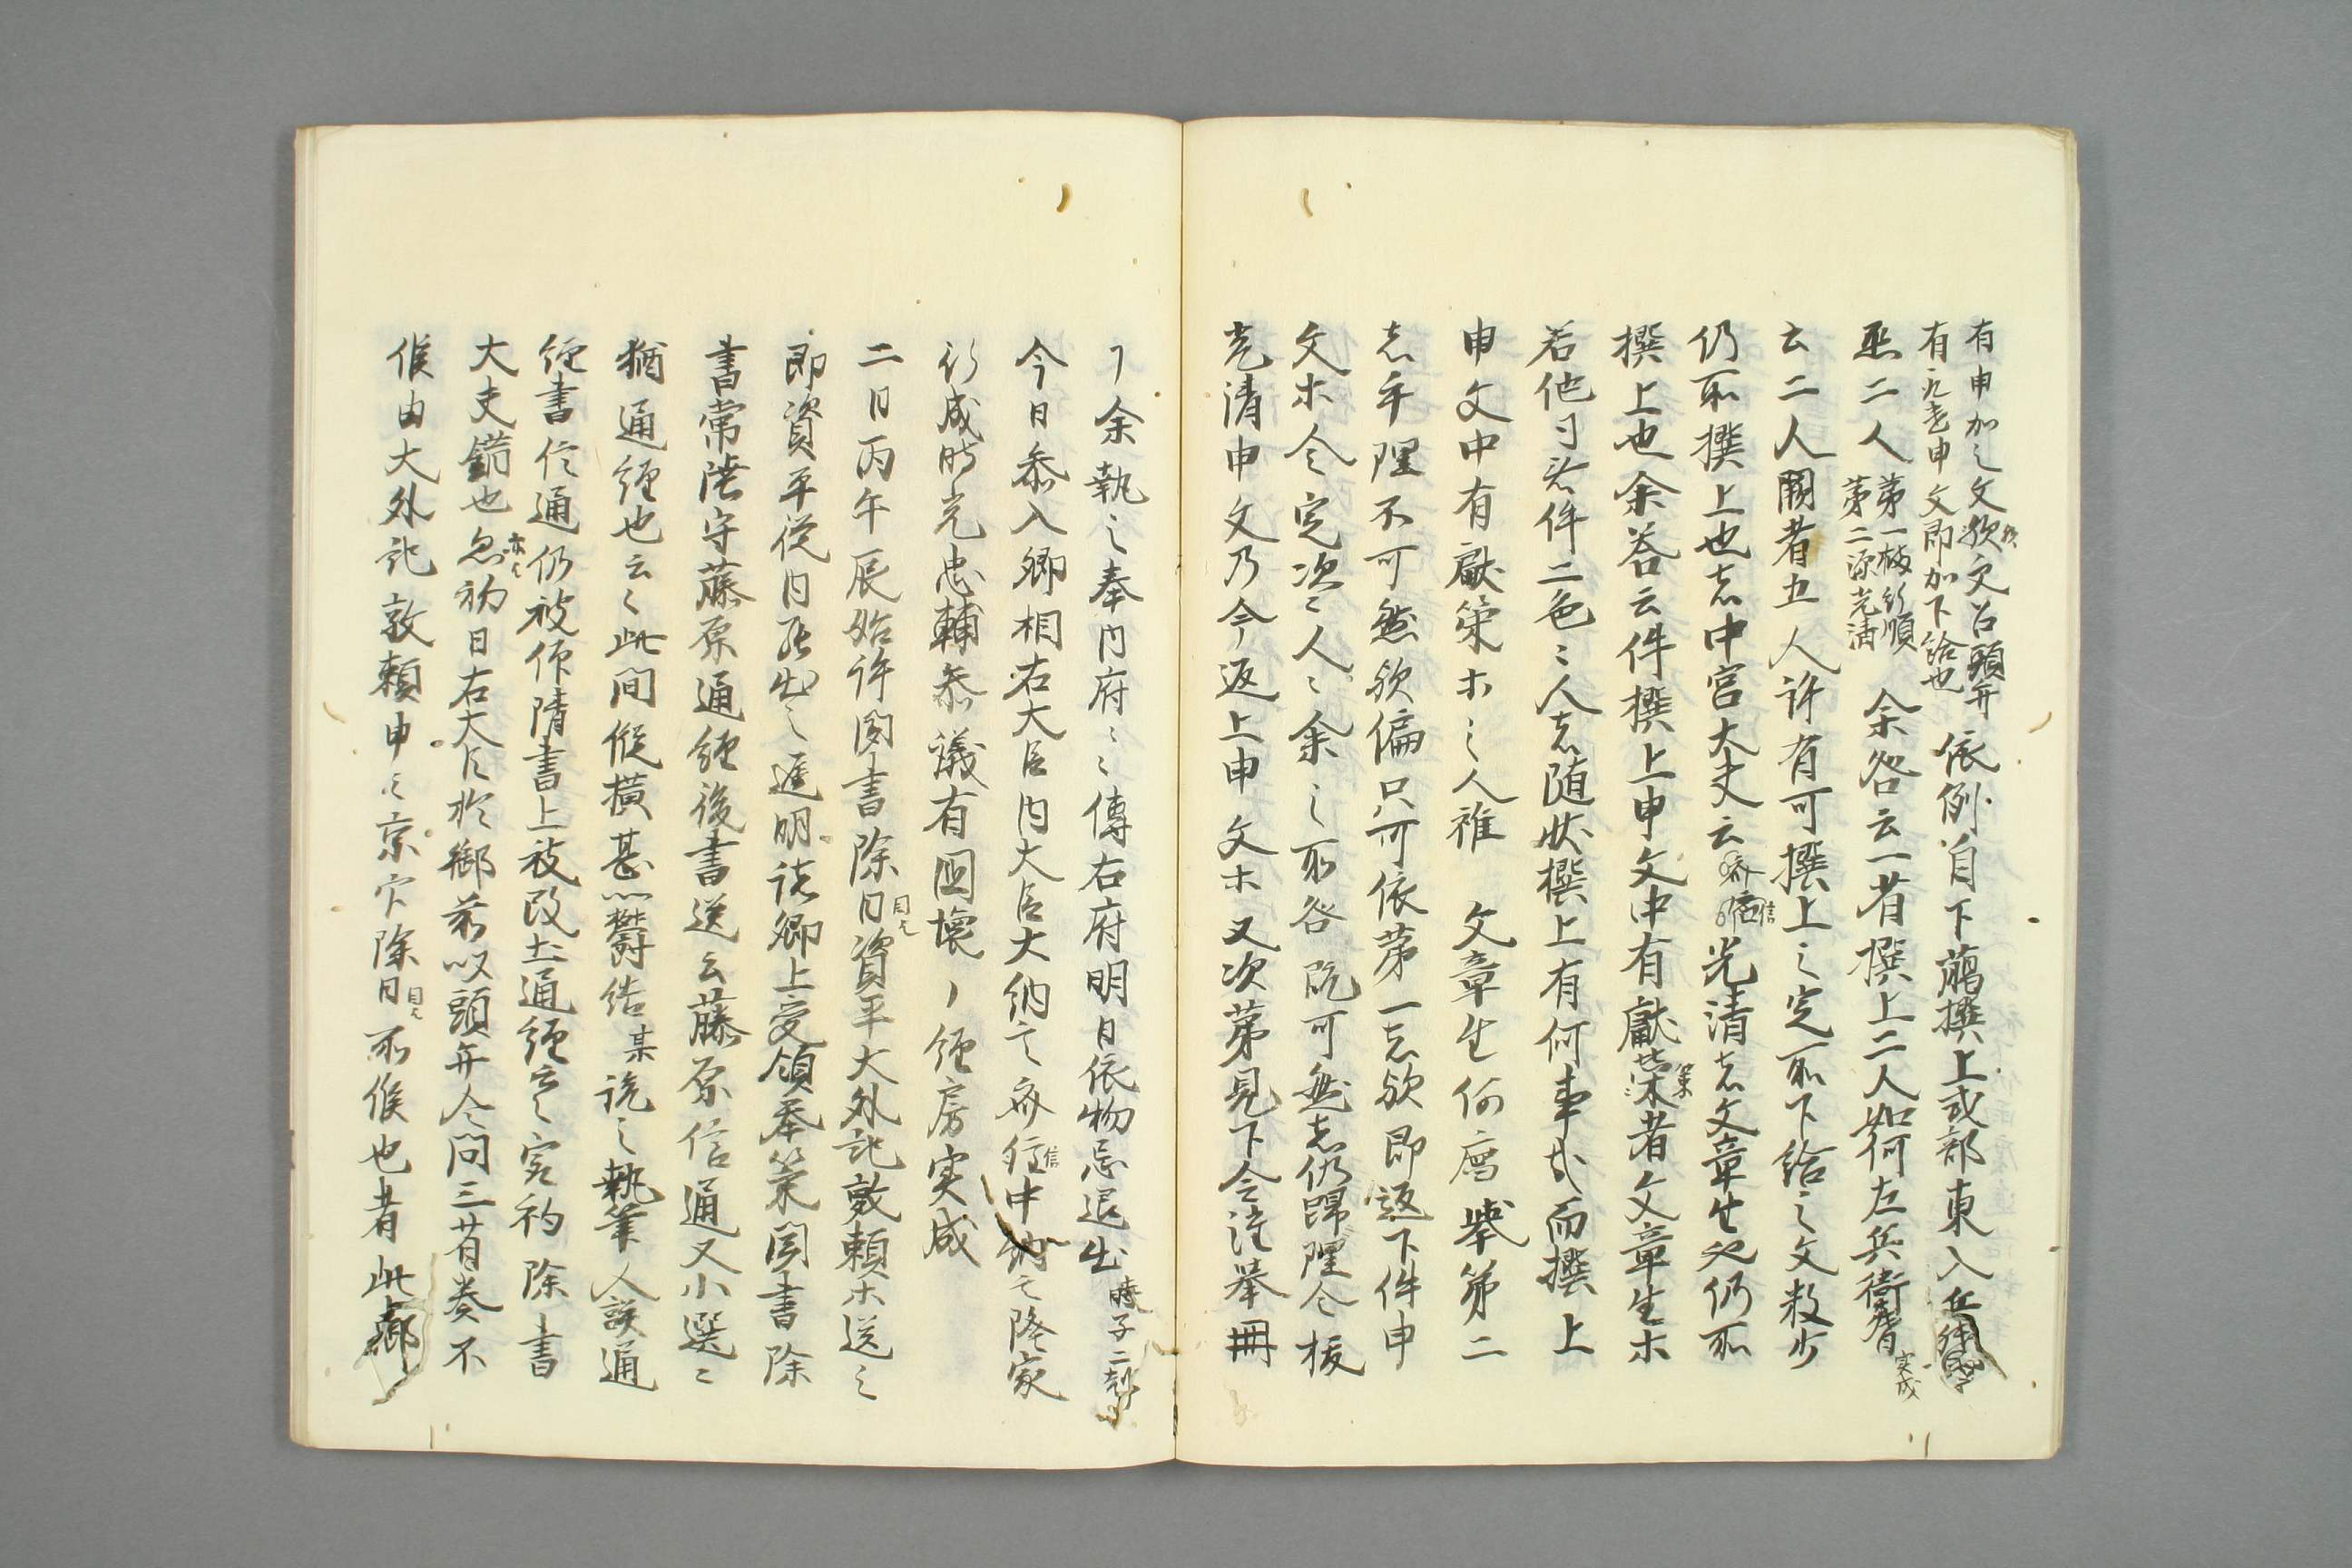 有申加之文欤文召頭弁
有一九者申文即加下給也
依例自下﨟撰上式部東入
丞二人
第一橘行順
第二源光清
余答云一省撰上二人如何左兵衛督実成
云二人闕者五人許有可撰上之定所下給之文数少
仍所撰上也者中宮大夫云斉信光清者文章生也仍所
撰上也余答云件撰上申文中有献策者文章生木
若他司若件二色〻人者随状撰上有何事哉而撰上
申文中有献策木之人雖文章生何層挙第二
者乎理不可然欤偏只可依第一者欤即返下件申
文木令定次〻人〻余之所答既可然者仍帰理令抜
光清申文乃今返上申文木又次第見下令注挙冊
了余執之奉内府〻傳右府明日依物忌退出時子二剋
今日参入卿相右大臣内大臣大納言斉信中納言隆家
行成時光忠輔参議有国懐〻経房実成
二日丙午辰始許関書除目資平大外記敦頼木送之
即資平従内罷出之進明談卿上受領奉策関書除
書常陸守藤原通経後書送云藤原信通又小選〻
猶通経也云〻此間縦横甚以欝結某説之執筆人誤通
経書信通仍被作隋書上被改也通経之定礼除書
大夫錯也忽初日右大臣於御前以頭弁令問三省奏不
候由大外記敦頼申之京官除目不候也者此都